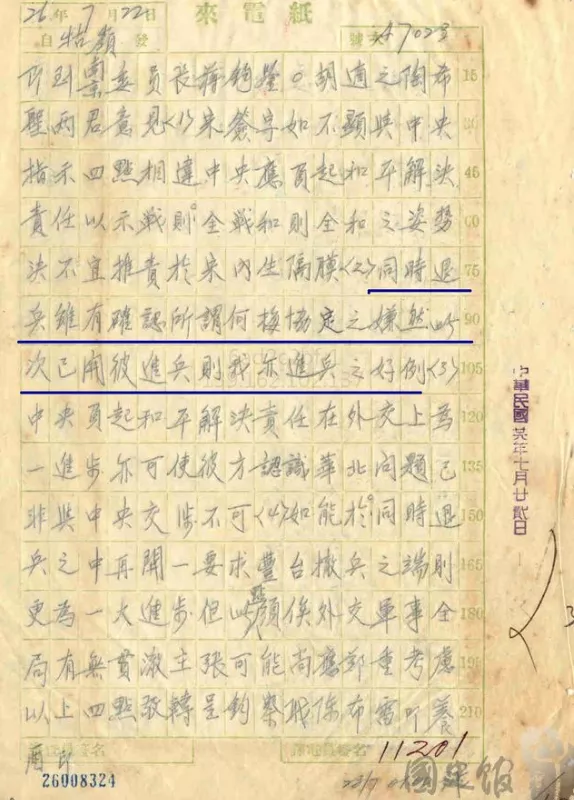 來電紙
26年7月22日
自牯嶺發 號次47023
即到密委員長蔣鈞鑒○胡適之陶希 15
聖兩君意見(1)宋簽字如不顯與中央 30
指示四點相違中央應負起和平解決 45
責任以示戰則全戰和則全和之姿勢 60
決不宜推責於宋內生隔膜(2)同時退 75
兵雖有確認所謂何梅協定之嫌然此 90
次已開彼進兵則我亦進兵之好例(3) 105
中央負起和平解決責任在外交上為 120
一進步亦可使彼方認識華北問題已 135
非與中央交涉不可(4)如能於同時退 150
兵之中再開一要求豐台撤兵之端則 165
更為一大進步但此點須俟外交軍事全 180
局有無貫澈主張可能尚應鄭重考慮 195
以上四點敬轉呈鈞察職陳布雷叩養 210
酉印
11201
26008324
中華民國 年七月廿貳日